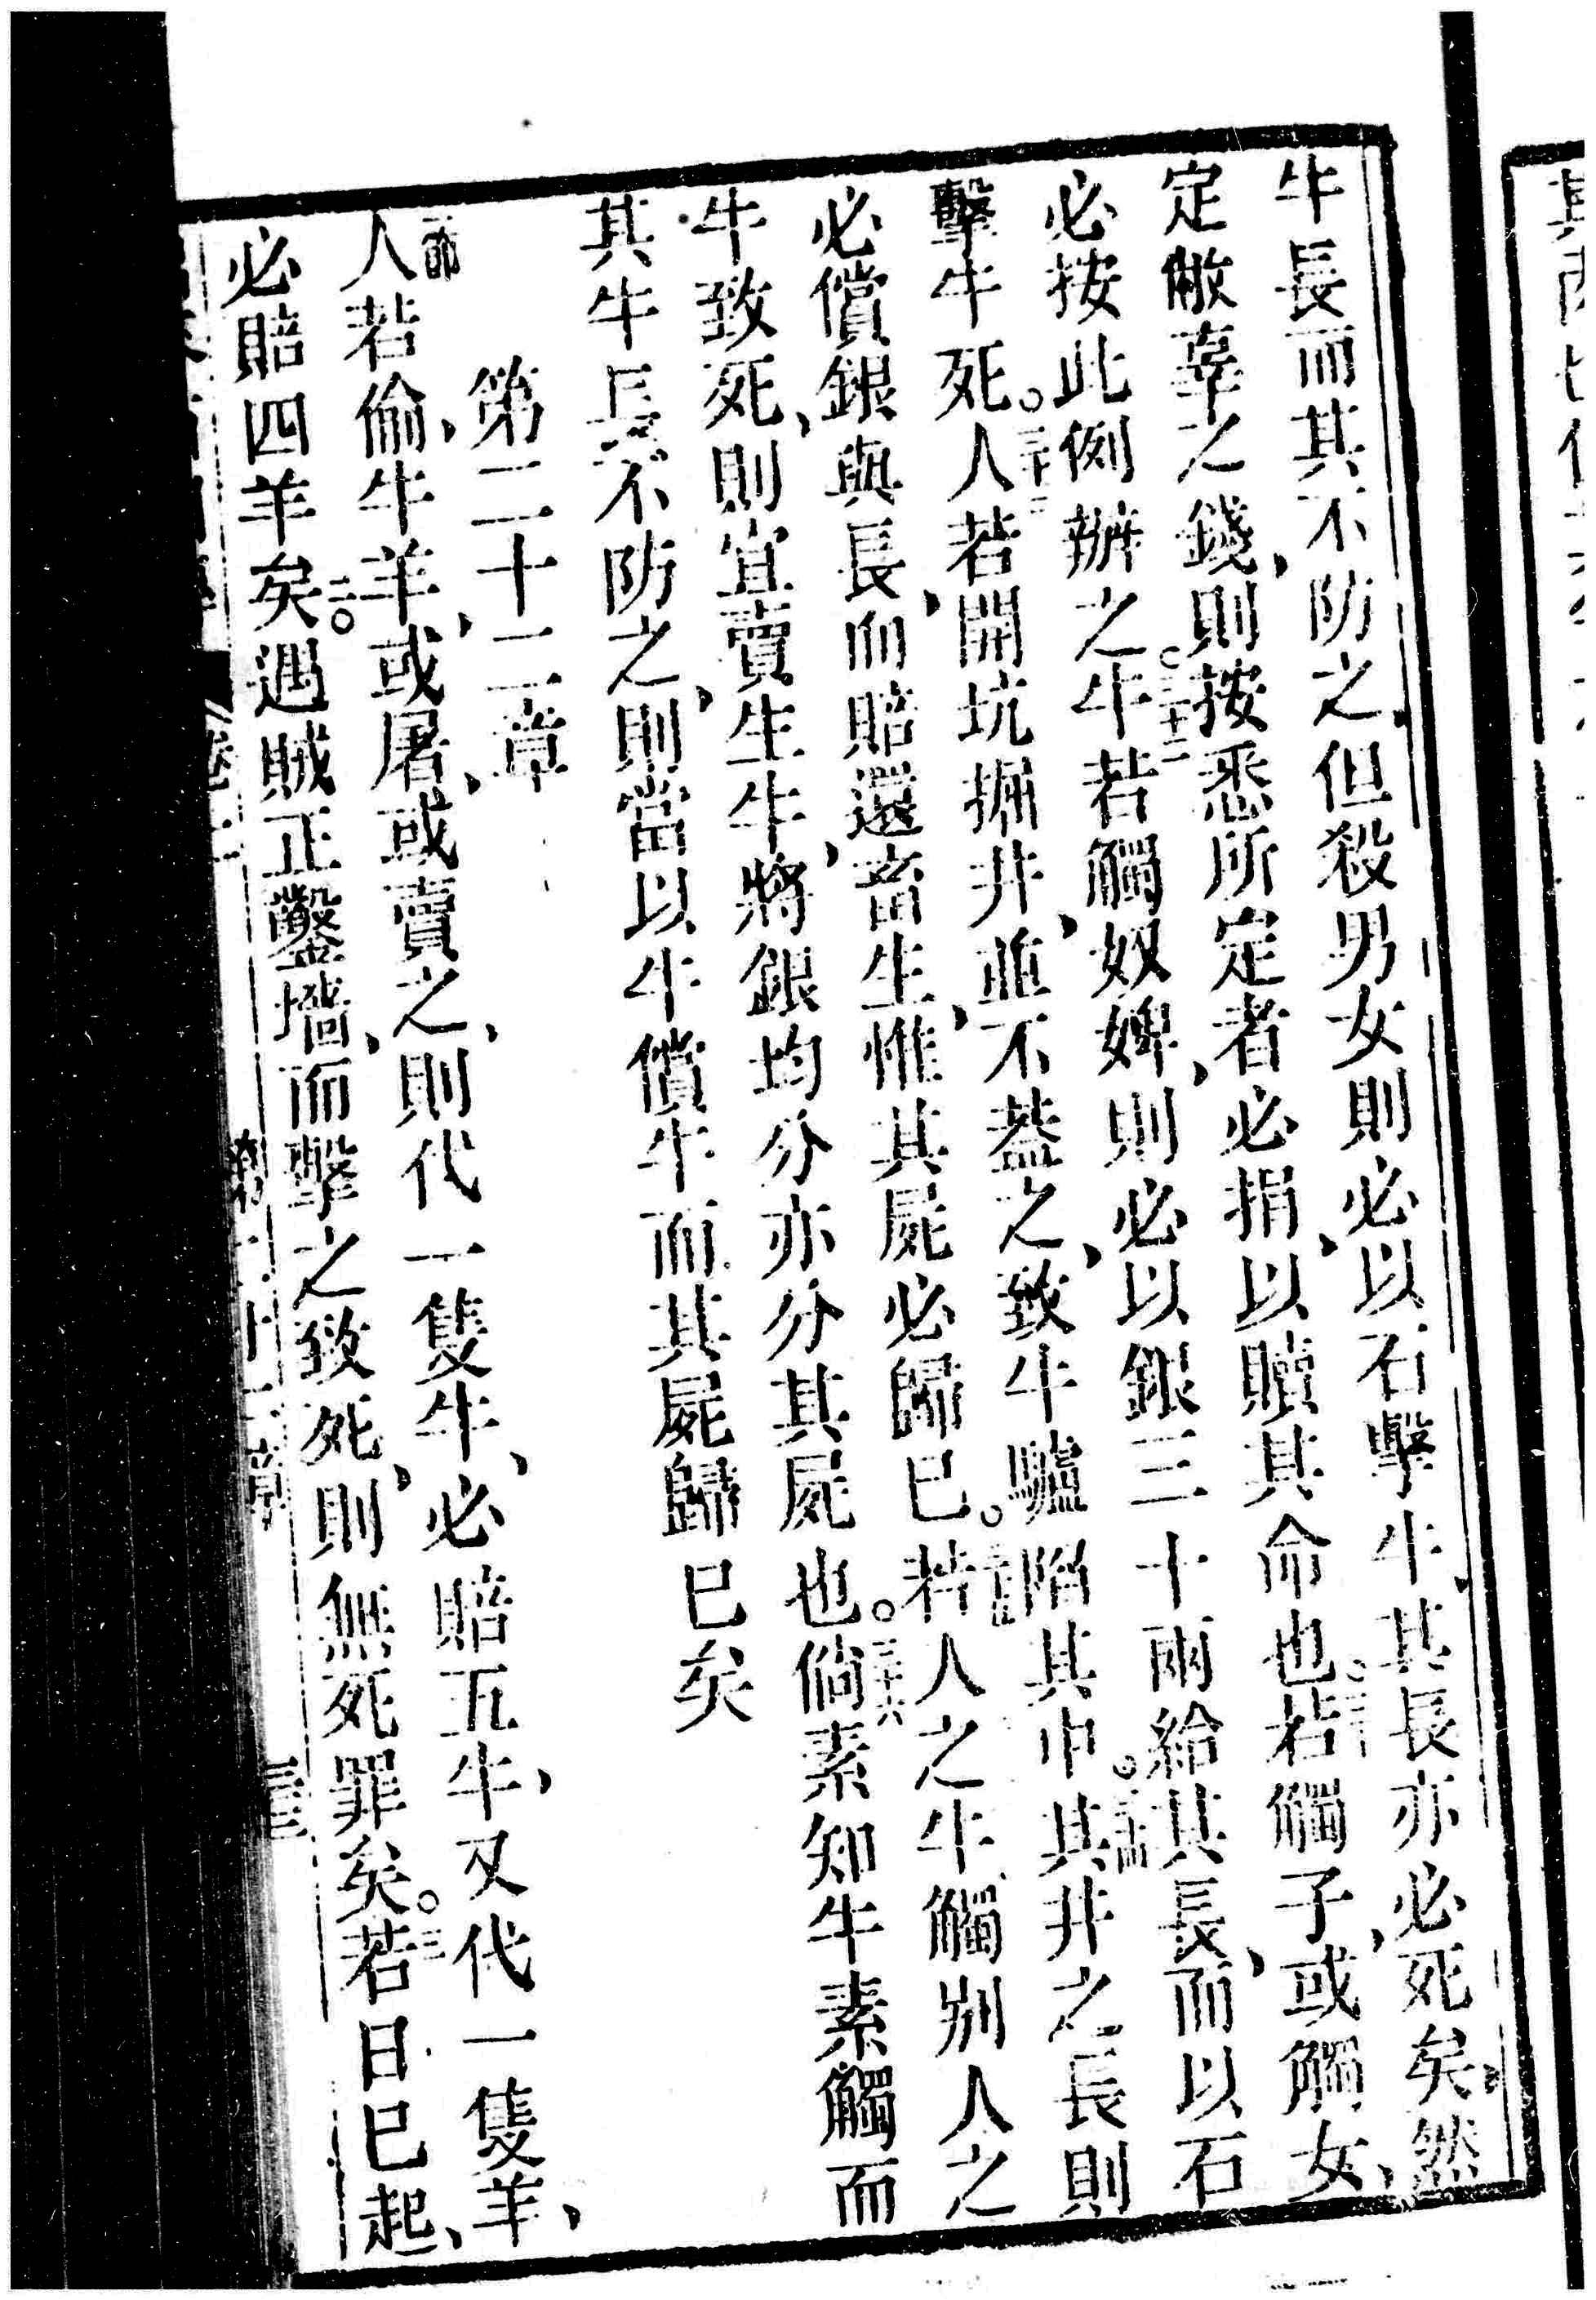 牛長而其不防之但殺男女則必以石擊牛其長亦必死矣然
定敝辜之錢、則按悉所定者必捐、以贖其命也。三十一若觸子、或觸女、
必按此例辦之。三十二牛若觸奴婢、則必以銀三十兩給其長、而以石
擊牛死。三十三人若開坑掘井、並不蓋之、致牛驢陷其中。三十四其井之長則
必償銀與長、而賠還畜生、惟其屍必歸已。三十五若人之牛、觸別人之
牛致死、則宜賣生牛、將銀均分亦分其屍也。三十六倘素知牛素觸而
其牛長不防之、則當以牛償牛而其屍歸已矣
第二十二章
一節人若偷、牛羊、或屠、或賣之、則代一隻牛、必賠五牛、又代一隻羊、
必賠四羊矣。二遇賊正鑿墻、而擊之致死、則無死罪矣。三若日已起、